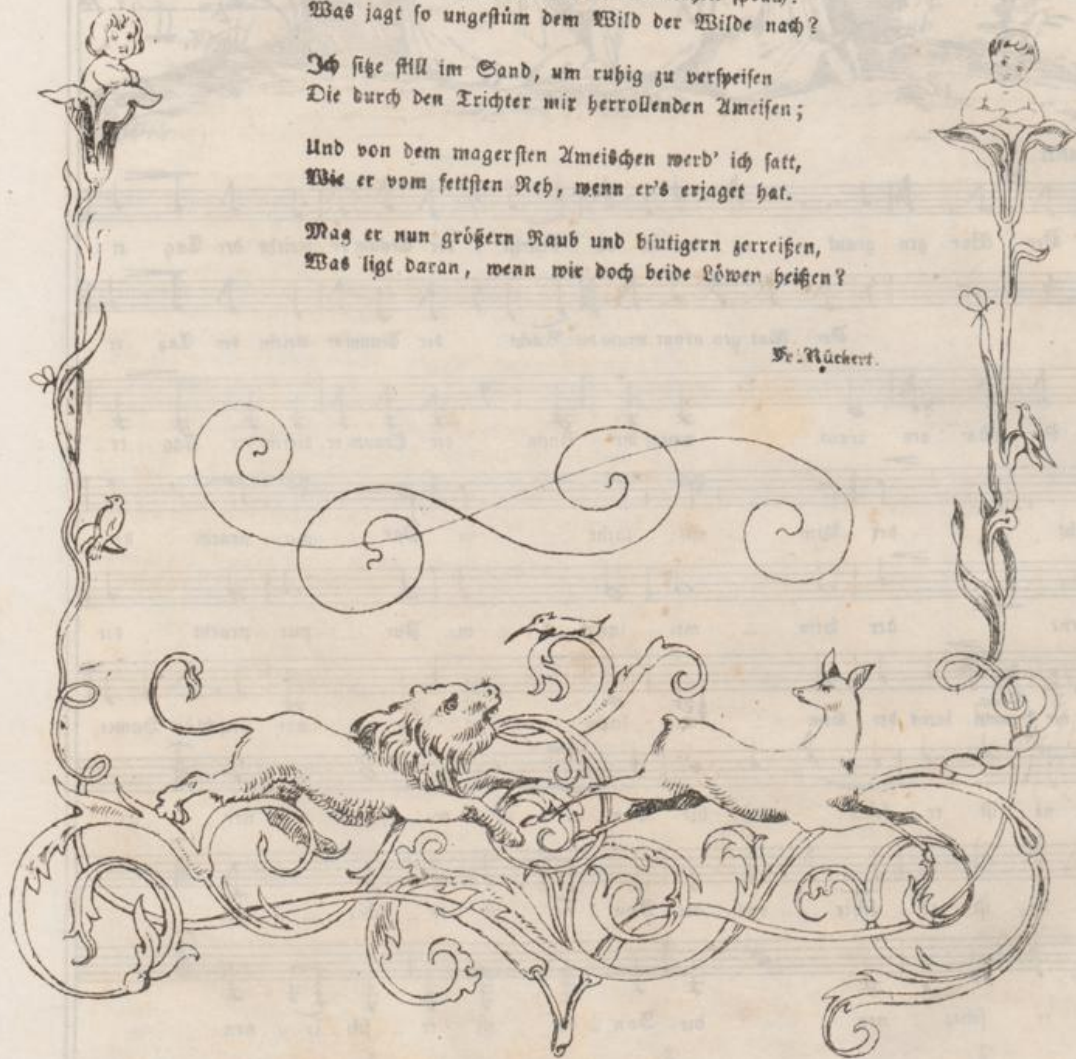 Was jagt so ungestüm dem Wild der Wilde nach?
Ich sitze still im Sand, um ruhig zu verspeisen
Die durch den Trichter mir herrollenden Ameisen;
Und von dem magersten Ameischen werd' ich satt,
Wie er vom fettsten Reh, wenn er's erjaget hat.
Mag er nun größern Raub und blutigern zerreißen,
Was ligt daran, wenn wir doch beide Löwen heißen?
Fr. Rückert.